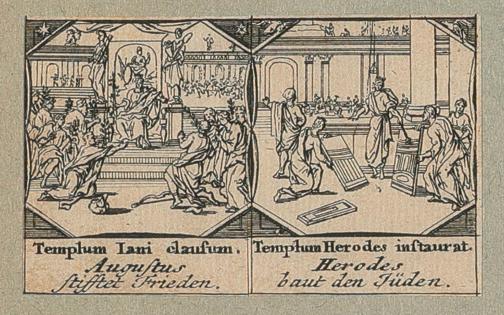 Templum Iani clausum.
Augustus
stifftet Frieden.
Templum Herodes instaurat.
Herodes
baut den Jüden.